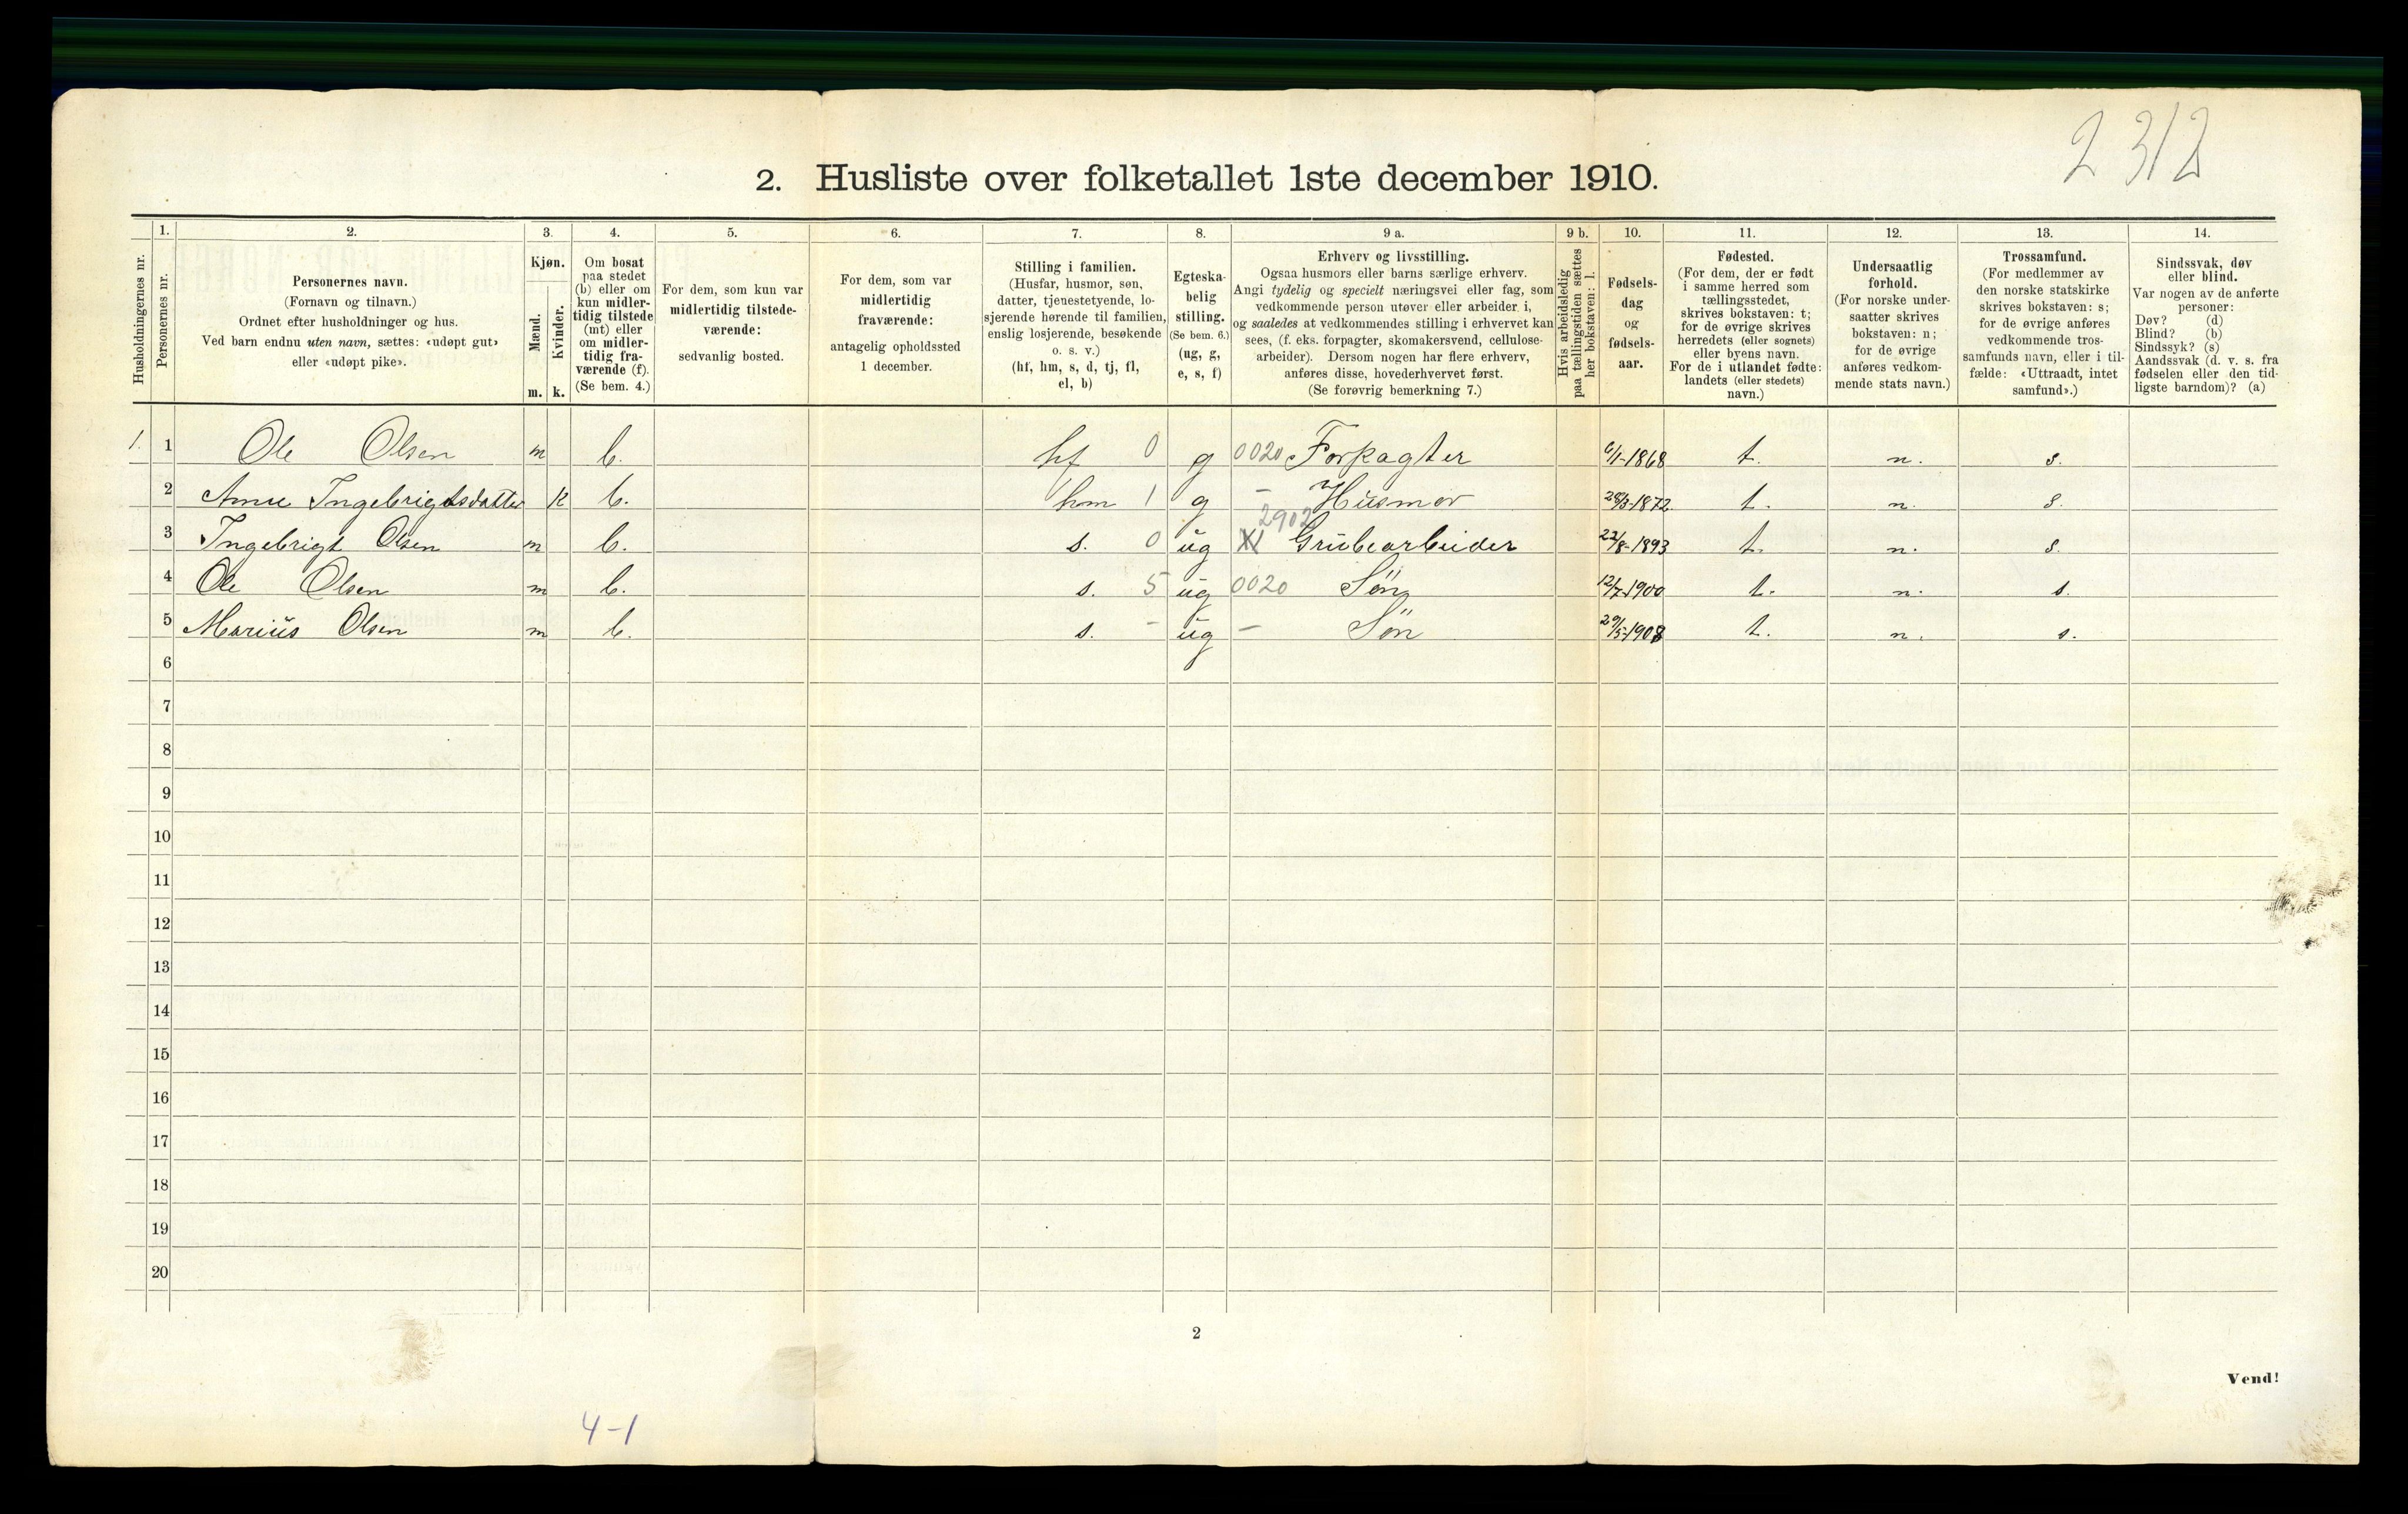 2312
2. Husliste over folketallet 1ste december 1910.
Husholdningernes nr.
1. Personernes nr.
2. Personernes navn.
(Fornavn og tilnavn.)
Ordnet efter husholdninger og hus.
Ved barn endnu uten navn, sættes: «udøpt gut»
eller «udøpt pike».
3. Kjøn.
Mænd. m.
Kvinder. k.
4. Om bosat
paa stedet
(b) eller om
kun midler-
tidig tilstede
(mt) eller
om midler-
tidig fra-
værende (f).
(Se bem. 4.)
5. For dem, som kun var
midlertidig tilstede-
værende:
sedvanlig bosted.
6. For dem, som var
midlertidig
fraværende:
antagelig opholdssted
1 december.
7. Stilling i familien.
(Husfar, husmor, søn,
datter, tjenestetyende, lo-
sjerende hørende til familien,
enslig losjerende, besøkende
o. s. v.)
(hf, hm, s, d, tj, fl,
el, b)
8. Egteska-
belig
stilling.
(Se bem. 6.)
(ug, g,
e, s, f)
9 a. Erhverv og livsstilling.
Ogsaa husmors eller barns særlige erhverv.
Angi tydelig og specielt næringsvei eller fag, som
vedkommende person utøver eller arbeider i,
og saaledes at vedkommendes stilling i erhvervet kan
sees, (f. eks. forpagter, skomakersvend, cellulose-
arbeider). Dersom nogen har flere erhverv,
anføres disse, hovederhvervet først.
(Se forøvrig bemerkning 7.)
9 b. Hvis arbeidsledig
paa tællingstiden sættes
her bokstaven: l.
10. Fødsels-
dag
og
fødsels-
aar.
11. Fødested.
(For dem, der er født
i samme herred som
tællingsstedet,
skrives bokstaven: t;
for de øvrige skrives
herredets (eller sognets)
eller byens navn.
For de i utlandet fødte:
landets (eller stedets)
navn.)
12. Undersaatlig
forhold.
(For norske under-
saatter skrives
bokstaven: n;
for de øvrige
anføres vedkom-
mende stats navn.)
13. Trossamfund.
(For medlemmer av
den norske statskirke
skrives bokstaven: s;
for de øvrige anføres
vedkommende tros-
samfunds navn, eller i til-
fælde: «Uttraadt, intet
samfund».)
14. Sindssvak, døv
eller blind.
Var nogen av de anførte
personer:
Døv? (d)
Blind? (b)
Sindssyk? (s)
Aandssvak (d. v. s. fra
fødselen eller den tid-
ligste barndom)? (a)
1. 1 Ole Olsen m b. hf 0 g 0020 Forpagter 6/1-1868 t. n. s.
2 Anne Ingebrigtsdatter k b. hm 1 g - Husmor 28/3-1872 t. n. s.
2902
3 Ingebrigt Olsen m b. s. 0 ug XI Grubearbeider 22/8-1893 t. n. s.
4 Ole Olsen m b. s. 5 ug 0020 Søn 12/7-1900 t. n. s.
5 Marius Olsen m b. s. - ug - Søn 29/5-1908 t. n. s.
6
7
8
9
10
11
12
13
14
15
16
17
18
19
20
2
Vend!
4-1